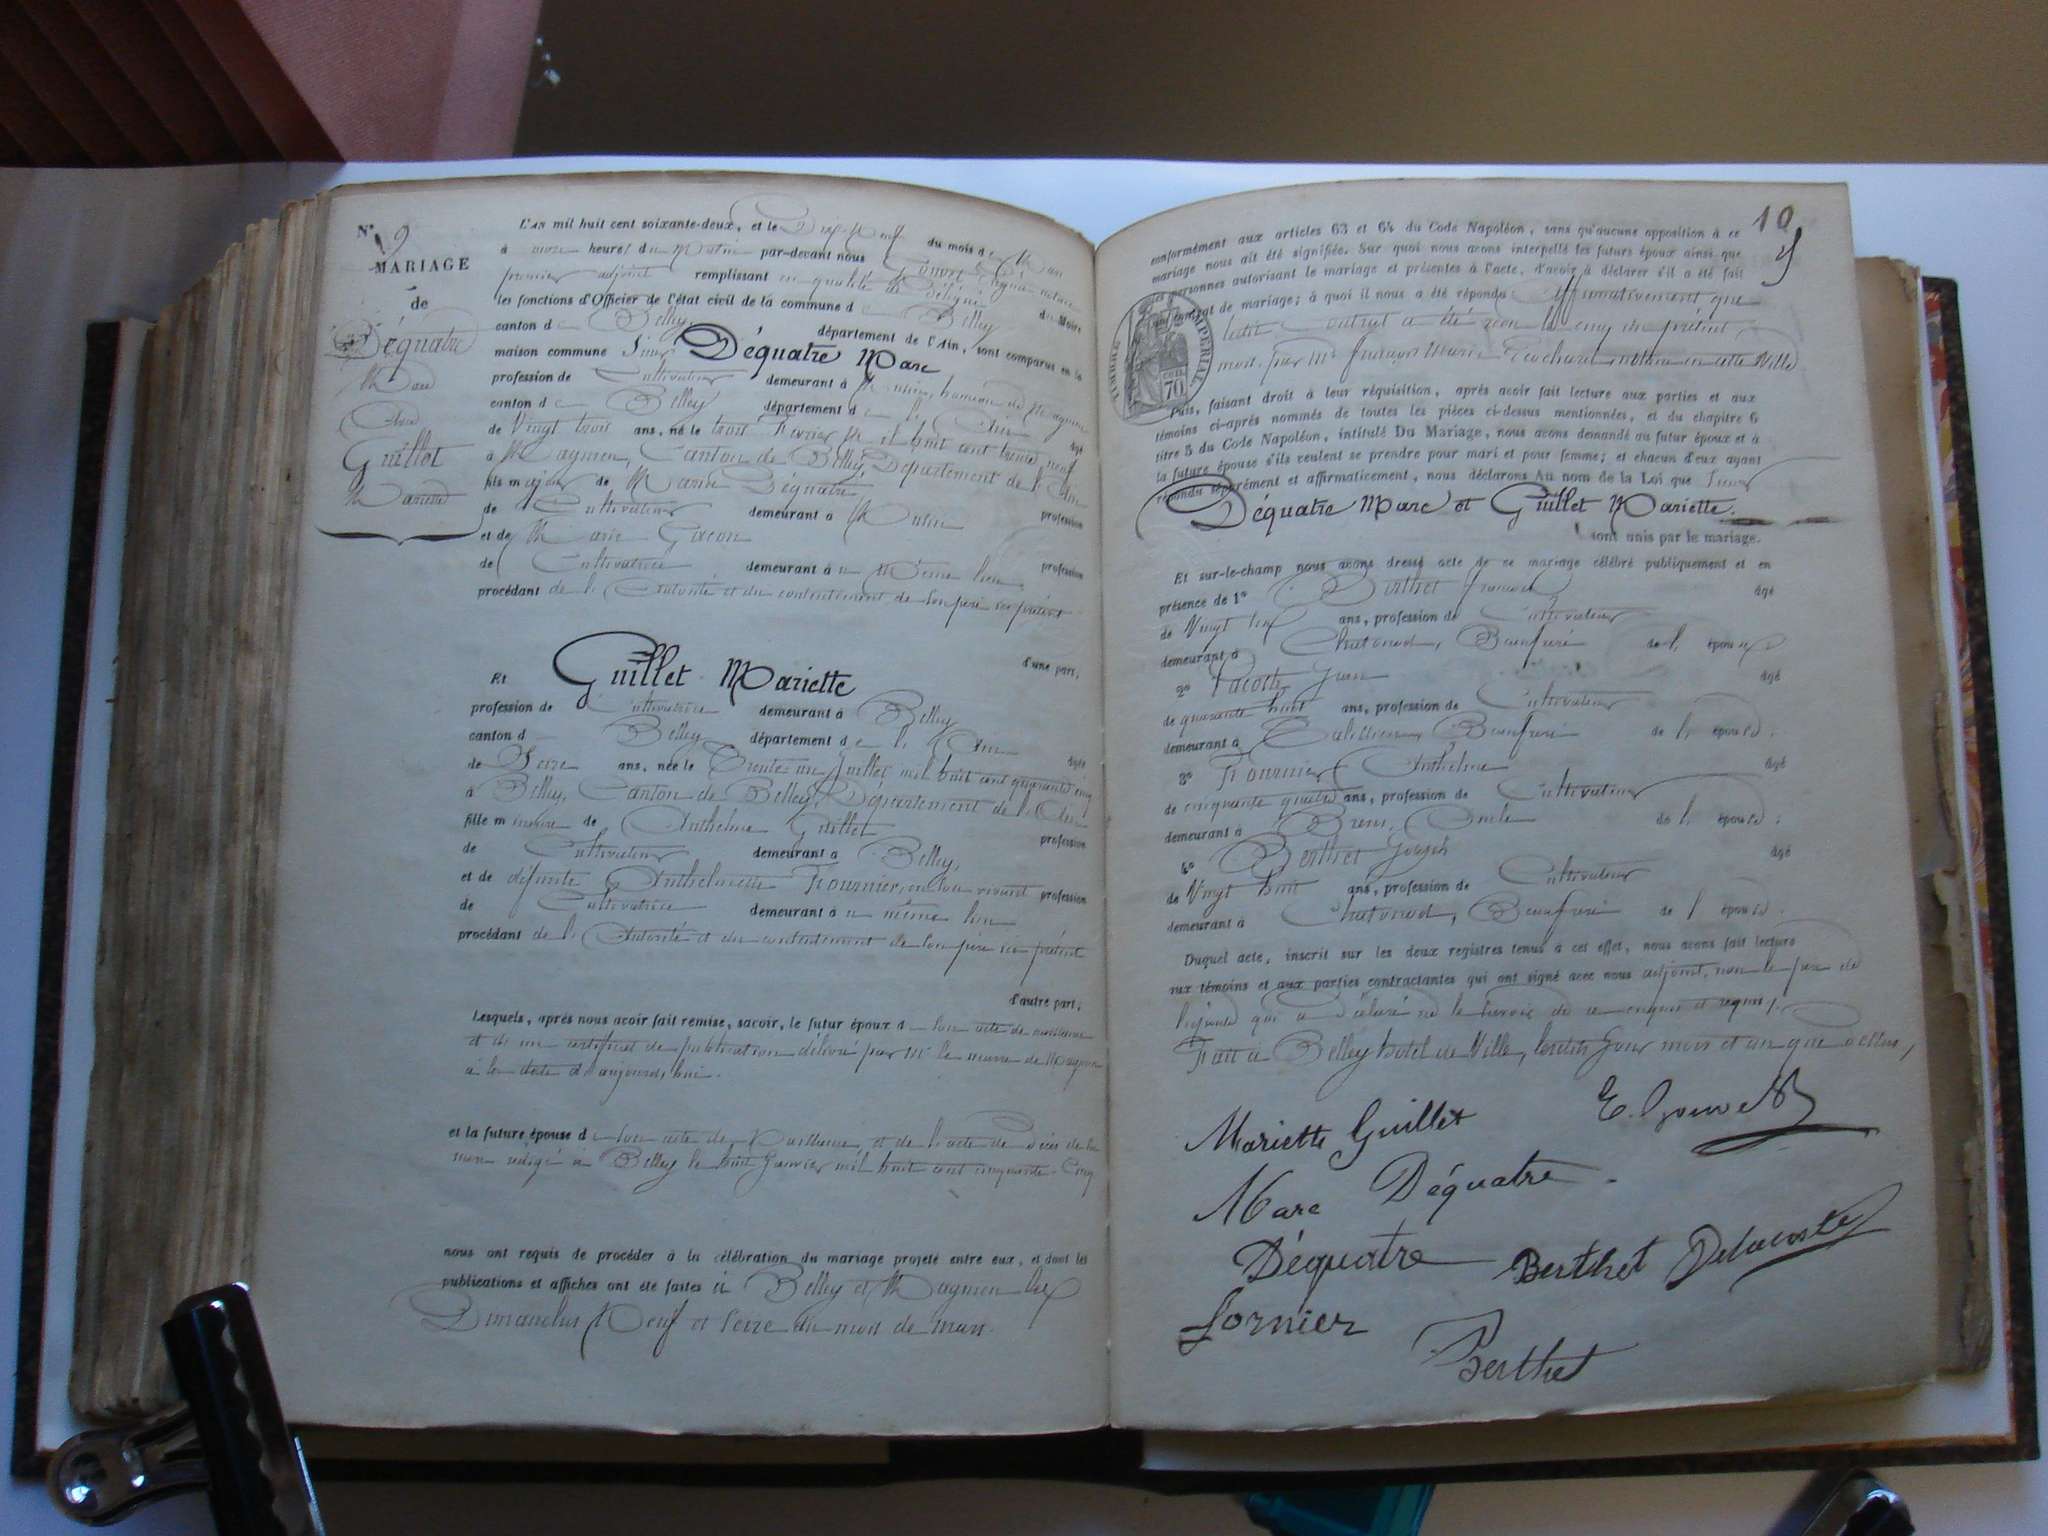 N° 9
MARIAGE
de
Déquatre
Marc
Guillet
Mariette
L'AN mil huit cent soixante-deux, et le Dix-Neuf du mois de Mars
à onze heures du Matin par-devant nous notaire
premier adjoint remplissant en qualité de Délégué du Maire
les fonctions d'Officier de l'état civil de la commune de Belley
canton de Belley département de l'Ain, sont comparus en la
maison commune Sieur Déquatre Marc
profession de Cultivateur demeurant à Musin, hameau de Magnieu
canton de Belley département de l'Ain âgé
de Vingt trois ans, né le trois Février Mil huit cent trente neuf
à Magnieu, Canton de Belley, Département de l'Ain
fils majeur de Déquatre profession
de Cultivateur demeurant à Musin
et de Marie profession
de Cultivatrice demeurant au même lieu
procédant de l'Autorité et du consentement de son père ici présent
d'une part,
Et Guillet Mariette
profession de Cultivatrice demeurant à Belley
canton de Belley département de l'Ain âgée
de Seize ans, née le Trente un Juillet mil huit cent quarante cinq
à Belley, Canton de Belley, Département de l'Ain
fille mineure de Anthelme Guillet profession
de Cultivateur demeurant à Belley,
et de défunte Anthelmette Fournier, en son vivant profession
de Cultivatrice demeurant au même lieu
procédant de l'Autorité et du consentement de son père ici présent
d'autre part,
Lesquels, après nous avoir fait remise, savoir, le futur époux de son acte de naissance
et de un certificat de publication délivré par Mr le maire de Magnieu
à la date d'aujourd'hui.
et la future épouse de son acte de Naissance, et de l'acte de décès de sa
mère rédigé à Belley le huit Janvier mil huit cent cinquante-Cinq
nous ont requis de procéder à la célébration du mariage projeté entre eux, et dont les
publications et affiches ont été faites à Belley et Magnieu les
Dimanches Neuf et Seize du mois de mars.
10
conformément aux articles 63 et 64 du Code Napoléon, sans qu'aucune opposition à ce
mariage nous ait été signifiée. Sur quoi nous avons interpellé les futurs époux ainsi que
les personnes autorisant le mariage et présentes à l'acte, d'avoir à déclarer s'il a été fait
un contrat de mariage; à quoi il nous a été répondu affirmativement que
ledit Contrat a été reçu le cinq du présent
mois, par Me François Marie notaire en cette Ville
TIMBRE IMPERIAL
CEN. 70
Puis, faisant droit à leur réquisition, après avoir fait lecture aux parties et aux
témoins ci-après nommés de toutes les pièces ci-dessus mentionnées, et du chapitre 6
titre 5 du Code Napoléon, intitulé Du Mariage, nous avons demandé au futur époux et à
la future épouse s'ils veulent se prendre pour mari et pour femme; et chacun d'eux ayant
répondu séparément et affirmativement, nous déclarons Au nom de la Loi que Sieur
Déquatre Marc et Guillet Mariette.
sont unis par le mariage.
Et sur-le-champ nous avons dressé acte de ce mariage célébré publiquement et en
présence de 1° Berthet François âgé
de Vingt six ans, profession de Cultivateur
demeurant à Chatonod, Beaufrère de l'époux
2° Lacoste Jean âgé
de quarante huit ans, profession de Cultivateur
demeurant à Beaufrère de l'épouse.
3° Fournier Anthelme âgé
de cinquante quatre ans, profession de Cultivateur
demeurant à Brens, Oncle de l'épouse;
4° Berthet Joseph âgé
de Vingt huit ans, profession de Cultivateur
demeurant à Chatonod, Beaufrère de l'épouse.
Duquel acte, inscrit sur les deux registres tenus à cet effet, nous avons fait lecture
aux témoins et aux parties contractantes qui ont signé avec nous adjoint, non le père de
l'épouse qui a déclaré ne le savoir de ce enquis et requis.
Fait à Belley hotel de Ville, lesdits Jour mois et an que dessus,
Mariette Guillet
Marc Déquatre
Déquatre Berthet Delacoste
Fornier
Berthet